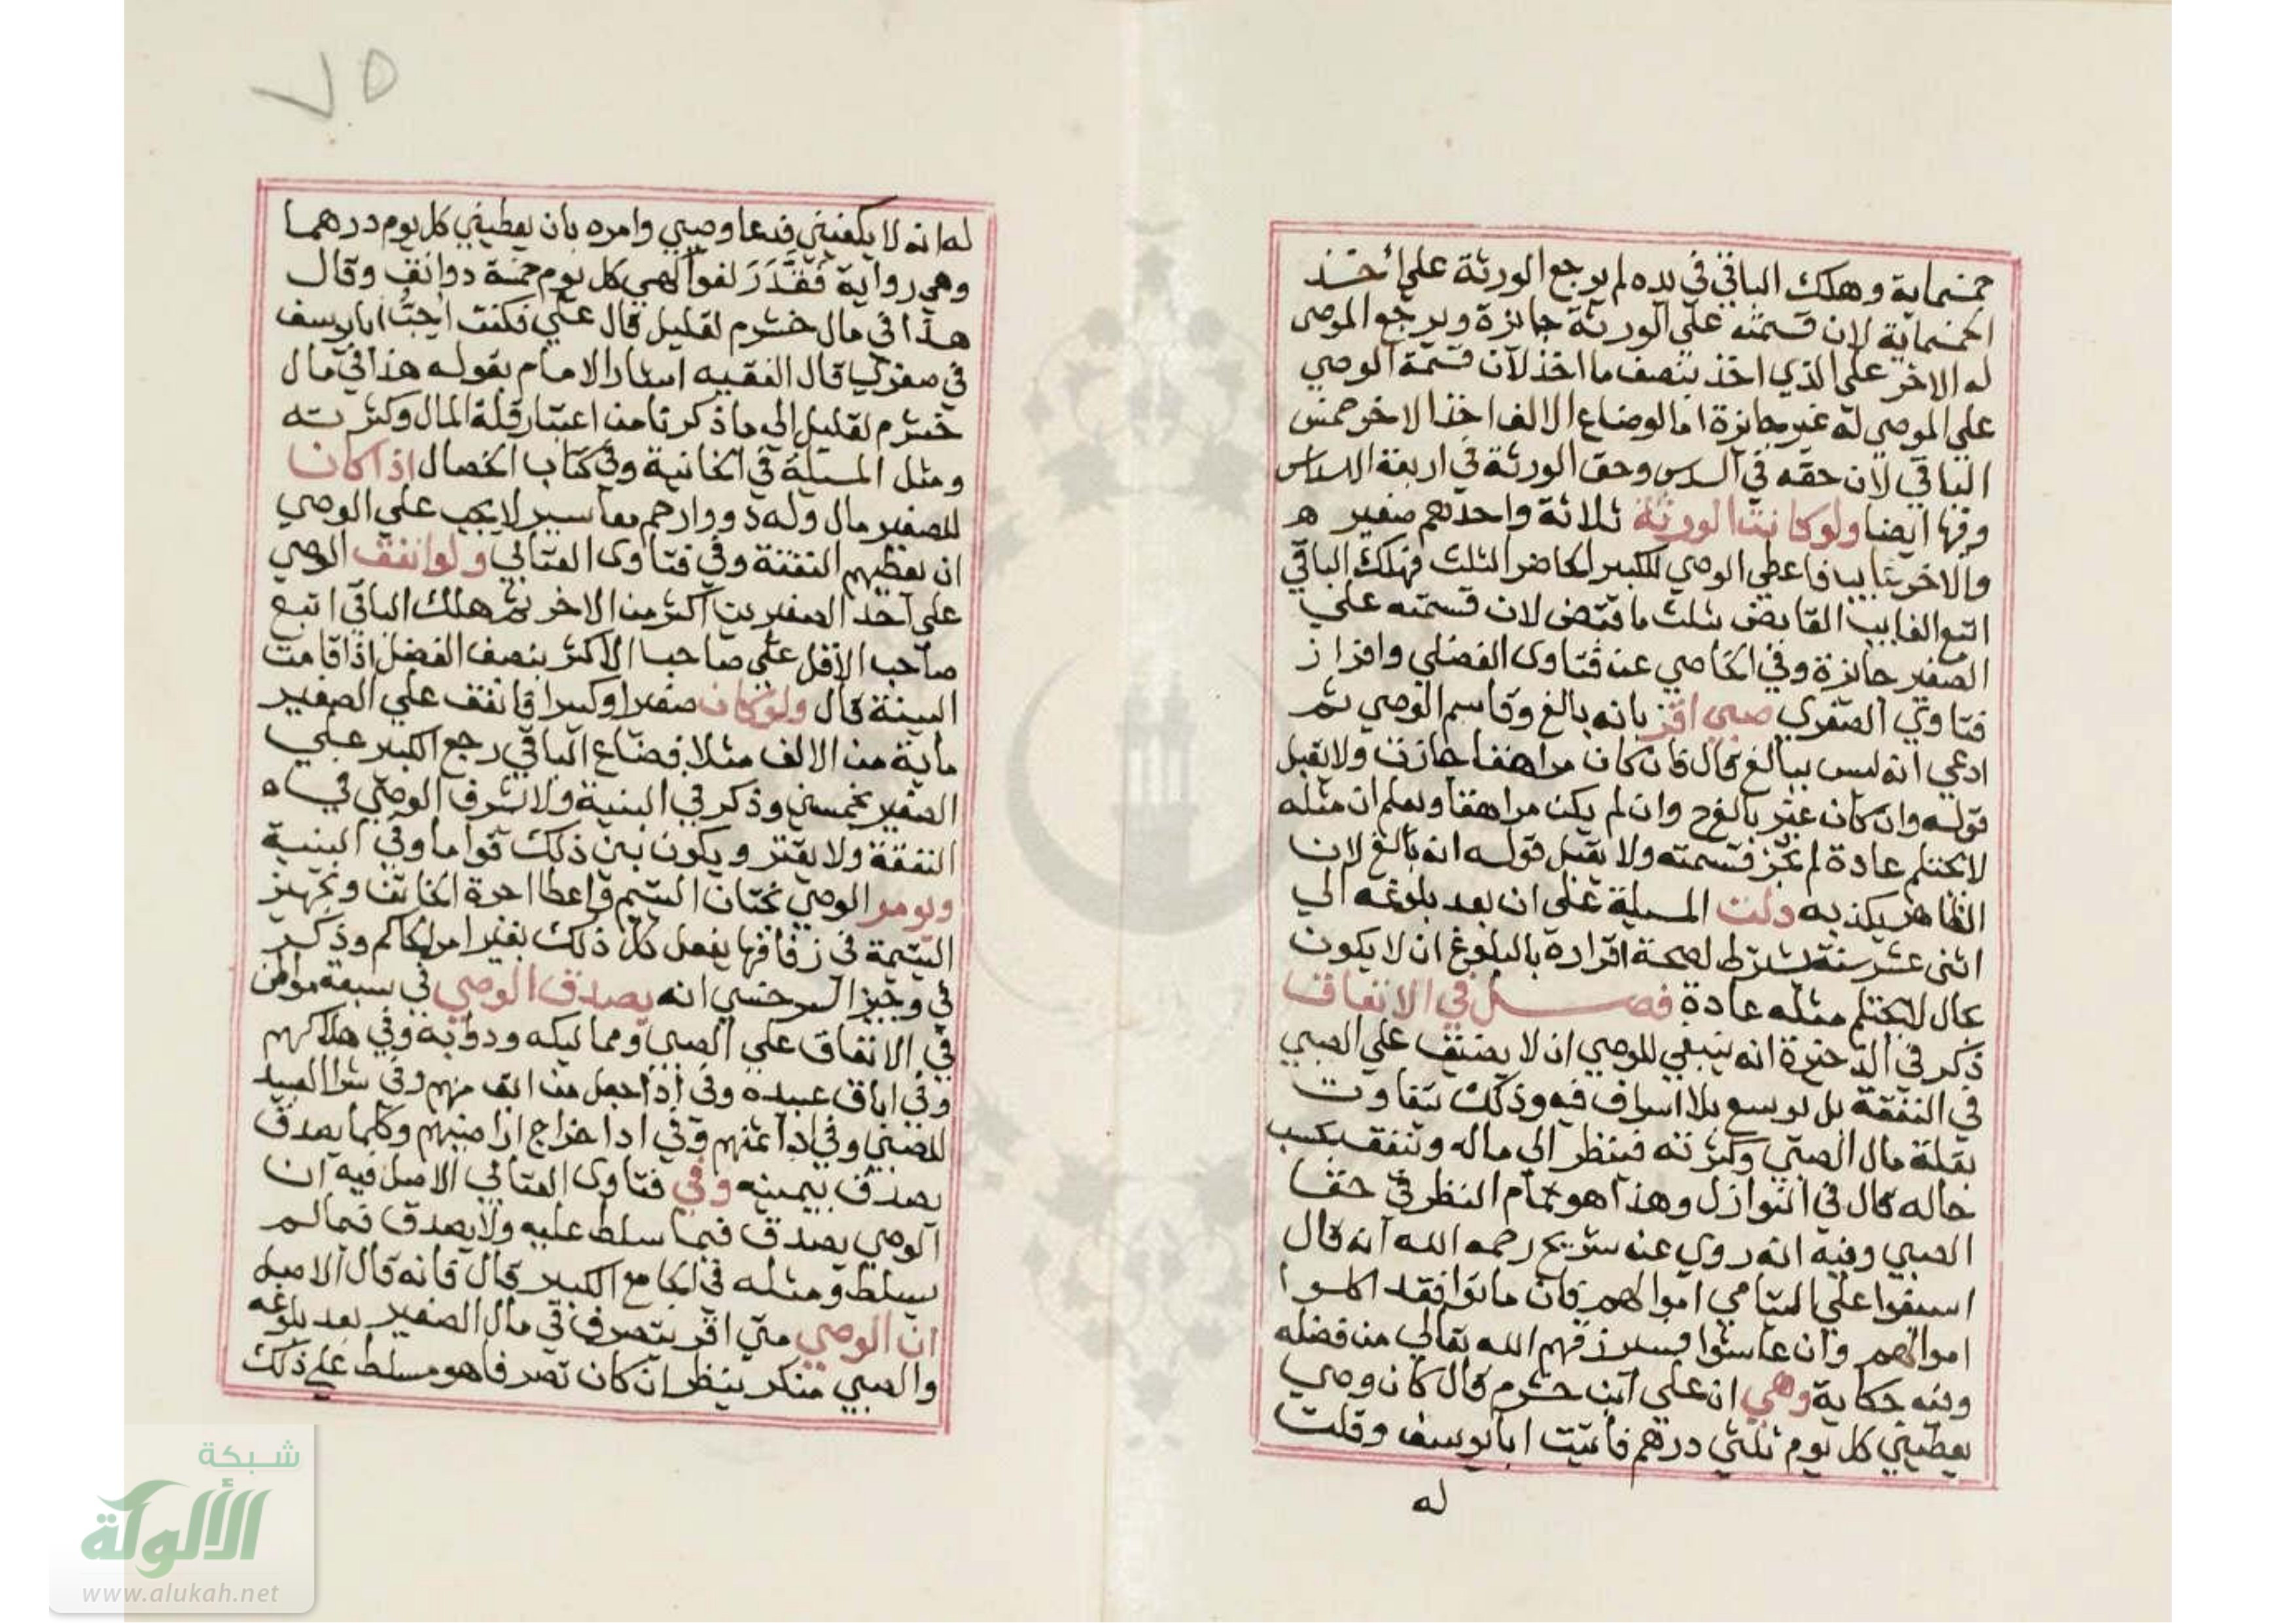 خمسماية وهلك الباقي في يده لم يرجع الورثة علي اخذ
الخمسماية لان قسمته علي الورثة جايزة ويرجع الموصي
له الاخر علي الذي اخذ بنصف ما اخذ لان قسمة الوصي
علي الموصي له غير جايزة اما لوضاع الالف اخذ الاخر خمس
الباقي لان حقه في السدس وحق الورثة في اربعة اسداس
وفيها ايضا ولو كانت الورثة ثلاثة واحدهم صغير
والاخر غايبا فاعطي الوصي للكبير الحاضر الثلث فهلك الباقي
اتبع الغايب القابض بثلث ما قبض لان قسمته علي
الصغير جايزة وفي الخاصي عن فتاوى الفضلي وافراز
فتاوي الصغري صبي اقر بانه بالغ وقاسم الوصي ثم
ادعي انه ليس ببالغ قال فان كان مراهقا جازت ولا يقبل
قوله وان كان غير بالغ وان لم يكن مراهقا ويعلم ان مثله
لا يحتلم عادة لم تجز قسمته ولا يقبل قوله انه بالغ لان
الظاهر يكذبه دلت المسيلة علي ان بعد بلوغه الي
اثني عشر سنة يشترط لصحة اقراره بالبلوغ ان لا يكون
بحال لا يحتلم مثله عادة فصل في الانفاق
ذكر في الذخيرة انه ينبغي للوصي ان لا يضيق علي الصبي
في النفقة بل يوسع بلا اسراف فيه وذلك يتفاوت
بقلة مال الصبي وكثرته فينظر الي ماله وينفق بحسب
حاله قال في النوازل وهذا هو تمام النظر في حق
الصبي وفيه انه روي عن شريح رحمه الله انه قال
اسبغوا علي اليتامي اموالهم فان ماتوا فقد اكلوا
اموالهم وان عاشوا فسيرزقهم الله تعالي من فضله
وفيه حكاية وهي ان علي ابن خشرم قال كان وصي
يعطيني كل يوم ثلثي درهم فاتيت ابا يوسف وقلت
له
٧٥
له انه لا يكفيني فدعا وصيي وامره بان يعطيني كل يوم درهما
وهي رواية فقدر لقوالهي كل يوم خمسة دوانق وقال
هذا في مال خشرم لقليل قال علي فكنت احب ابا يوسف
في صغري قال الفقيه اشار الامام بقوله هذا في مال
خشرم لقليل الي ما ذكرنا من اعتبار قلة المال وكثرته
ومثل المسيلة في الخانية وفي كتاب الخصال اذا كان
للصغير مال وله ذووا رحم معاسير لا يجب علي الوصي
ان يعطيهم النفقة وفي فتاوى العتابي ولو انفق الوصي
علي احد الصغيرين اكثر من الاخر ثم هلك الباقي اتبع
صاحب الاقل علي صاحب الاكثر بنصف الفضل اذا قامت
البينة قال ولو كان صغيرا وكبيرا فانفق علي الصغير
ماية من الالف مثلا فضاع الباقي رجع الكبير علي
الصغير بخمسين وذكر في البنية ولا يسرف الوصي في
النفقة ولا يقتر ويكون بين ذلك قواما وفي البنية
ويومر الوصي بختان اليتيم واعطا اجرة الخاتن وتجهيز
اليتيمة في زفافها يفعل كل ذلك بغير امر الحاكم وذكر
في وجيز السرخسي انه يصدق الوصي في سبعة مواطن
في الانفاق علي الصبي ومماليكه ودوابه وفي هلاكهم
وفي اباق عبيده وفي اذا جعل من ابق منهم وفي شرا العبيد
للصبي وفي ادا ثمنهم وفي ادا خراج اراضيهم وكلما يصدق
يصدق بيمينه وفي فتاوى العتابي الاصل فيه ان
الوصي يصدق فيما سلط عليه ولا يصدق فيما لم
يسلط ومثله في الجامع الكبير قال فانه قال الاصل
ان الوصي متي اقر بتصرف في مال الصغير بعد بلوغه
والصبي منكر ينظر ان كان تصرفا هو مسلط علي ذلك
شبكة
الألوكة
www.alukah.net